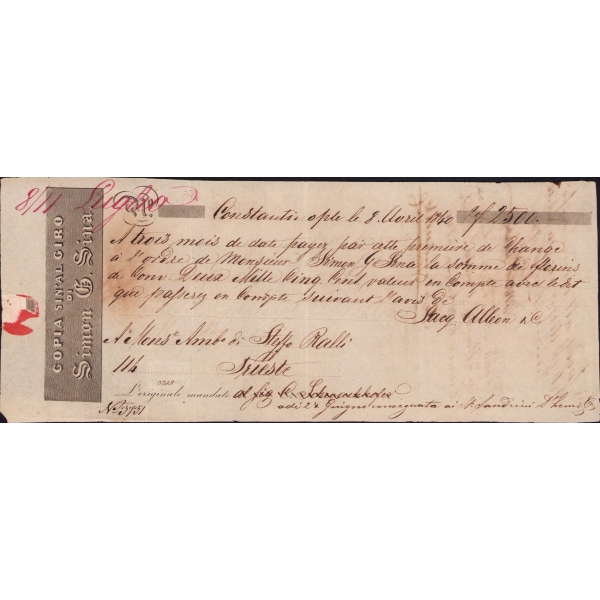 8/11 Luglio
COPIA SIN AL GIRO
DI
Simon G. Sina
Constantinople le 8 Avril 1840 #f 2500.-
A trois mois de date payez par cette premiere de Change
à l'ordre de Monsieur Simon G Sina la somme de florins
de Conv. Deux Mille Cinq Cent valeur en Compte avec le dit
que passerez en Compte suivant l'avis de
Jacq Alleon & C
A Mons. Amb. di Steffo Ralli
114 Trieste
L'originale mandato al Sig
adi 24 Giugno consegnata ai